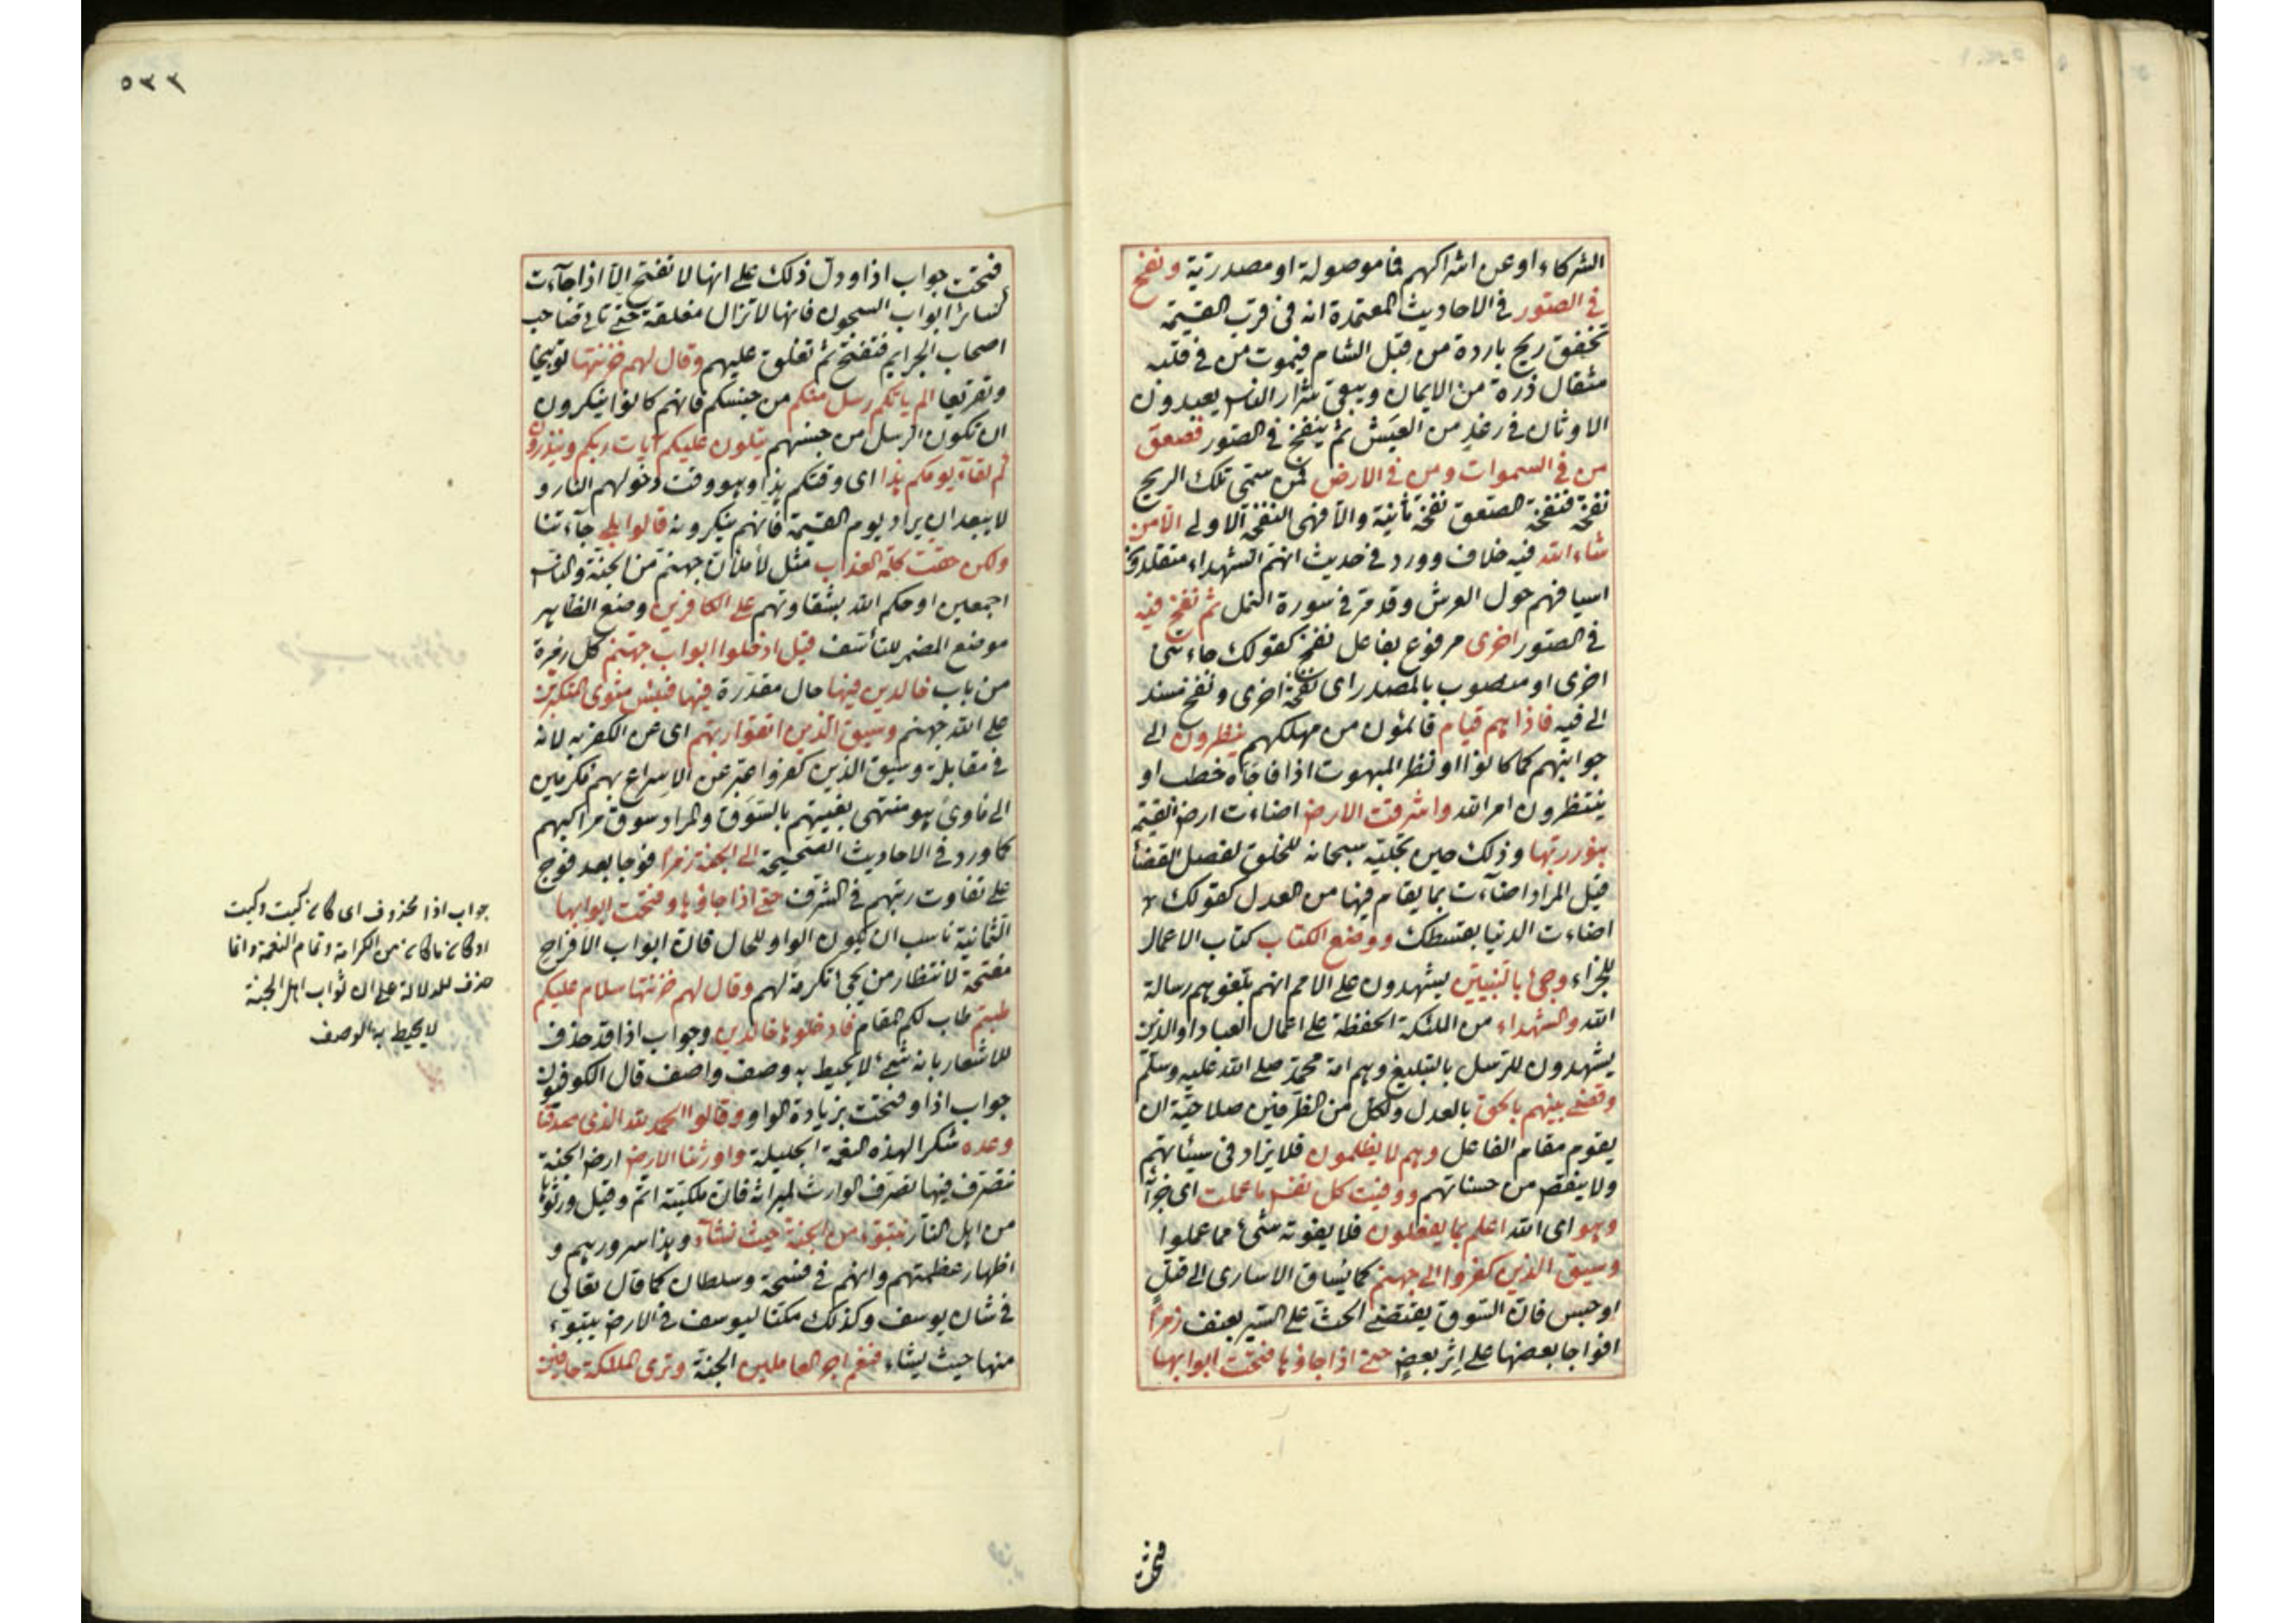 الشركاء او عن اشراكهم فما موصولة او مصدرية ونفخ
في الصور في الاحاديث المعتمدة انه في قرب القيمة
تخفق ريح باردة من قبل الشام فيموت من في قلبه
مثقال ذرة من الايمان ويبقى شرار الناس يعبدون
الاوثان في رغد من العيش ثم ينفخ في الصور فصعق
من في السموات ومن في الارض فمن سمى تلك الريح
نفخة فنفخة الصعق نفخة ثانية والا فهي النفخة الاولى الا من
شاء الله فيه خلاف وورد في حديث انهم الشهداء متقلدون
اسيافهم حول العرش وقد مر في سورة النمل ثم نفخ فيه
في الصور اخرى مرفوع بفاعل نفخ كقولك جاءني
اخرى او منصوب بالمصدر اى نفخة اخرى ونفخ مسند
الى فيه فاذا هم قيام قائمون من مهلكهم ينظرون الى
جوانبهم كما كانوا او نظر المبهوت اذا فاجأه خطب او
ينتظرون امر الله واشرقت الارض اضاءت ارض القيمة
بنور ربها وذلك حين تجليه سبحانه للخلق لفصل القضا
قيل المراد اضآءت بما يقام فيها من العدل كقولك
اضاءت الدنيا بقسطك ووضع الكتاب كتاب الاعمال
للجزاء وجئ بالنبيين يشهدون على الامم انهم بلغوهم رسالة
الله والشهداء من الملئكة الحفظة على اعمال العباد او الذين
يشهدون للرسل بالتبليغ وهم امة محمد صلى الله عليه وسلم
وقضى بينهم بالحق بالعدل ولكل من الظرفين صلاحية ان
يقوم مقام الفاعل وهم لا يظلمون فلا يزاد في سيئاتهم
ولا ينقص من حسناتهم ووفيت كل نفس ما عملت اى جزآ
وهو اى الله اعلم بما يفعلون فلا يفوته شئ مما عملوا
وسيق الذين كفروا الى جهنم كما يساق الاسارى الى قتل
او حبس فان السوق يقتضى الحث على السير بعنف زمرا
افواجا بعضها على اثر بعض حتى اذا جاؤها فتحت ابوابها
فتحت
٥٣٣
فتحت جواب اذا ودل ذلك على انها لا تفتح الا اذا جآءت
كسائر ابواب السجون فانها لا تزال مغلقة حتى تاتي
اصحاب الجرايم فتفتح ثم تغلق عليهم وقال لهم خزنتها توبيخا
وتقريعا الم ياتكم رسل منكم من جنسكم فانهم كانوا ينكرون
ان تكون الرسل من جنسهم يتلون عليكم آيات ربكم وينذرون
كم لقآء يومكم هذا اى وقتكم هذا وهو وقت دخولهم النار و
لا يبعد ان يراد يوم القيمة فانهم ينكرونه قالوا بلى جآءتنا
ولكن حقت كلمة العذاب مثل لأملأن جهنم من الجنة والناس
اجمعين او حكم الله بشقاوتهم على الكافرين وضع الظاهر
موضع المضمر للتأسف قيل ادخلوا ابواب جهنم كل زمرة
من باب خالدين فيها حال مقدرة فيها فبئس مثوى المتكبرين
على الله جهنم وسيق الذين اتقوا ربهم اى عن الكفر به لانه
في مقابلة وسيق الذين كفروا عبر عن الاسراع بهم مكرمين
الى مأوى هو منتهى بغيتهم بالسوق والمراد سوق مراكبهم
كما ورد في الاحاديث الصحيحة الى الجنة زمرا فوجا بعد فوج
على تفاوت رتبهم في الشرف حتى اذا جاؤها وفتحت ابوابها
الثمانية ناسب ان يكون الواو للحال فان ابواب الافراح
مفتحة لانتظار من يجئ تكرمة لهم وقال لهم خزنتها سلام عليكم
طبتم طاب لكم المقام فادخلوها خالدين وجواب اذا قد حذف
للاشعار بانه شئ لا يحيط به وصف واصف قال الكوفيون
جواب اذا وفتحت بزيادة الواو وقالوا الحمد لله الذى صدقنا
وعده شكرا لهذه النعمة الجليلة واورثنا الارض ارض الجنة
نتصرف فيها تصرف الوارث لميراثه فان ملكيته اتم وقيل ورثوها
من اهل النار نتبوء من الجنة حيث نشآء وهذا سرورهم و
اظهار عظمتهم وانهم في فسحة وسلطان كما قال تعالى
في شان يوسف وكذلك مكنا ليوسف في الارض يتبوء
منها حيث يشاء فنعم اجر العاملين الجنة وترى الملئكة حافين
جواب اذا محذوف اى كان كيت وكيت
او كان ما كان من الكرامة وتمام النعمة وانما
حذف للدلالة على ان ثواب اهل الجنة
لا يحيط به الوصف